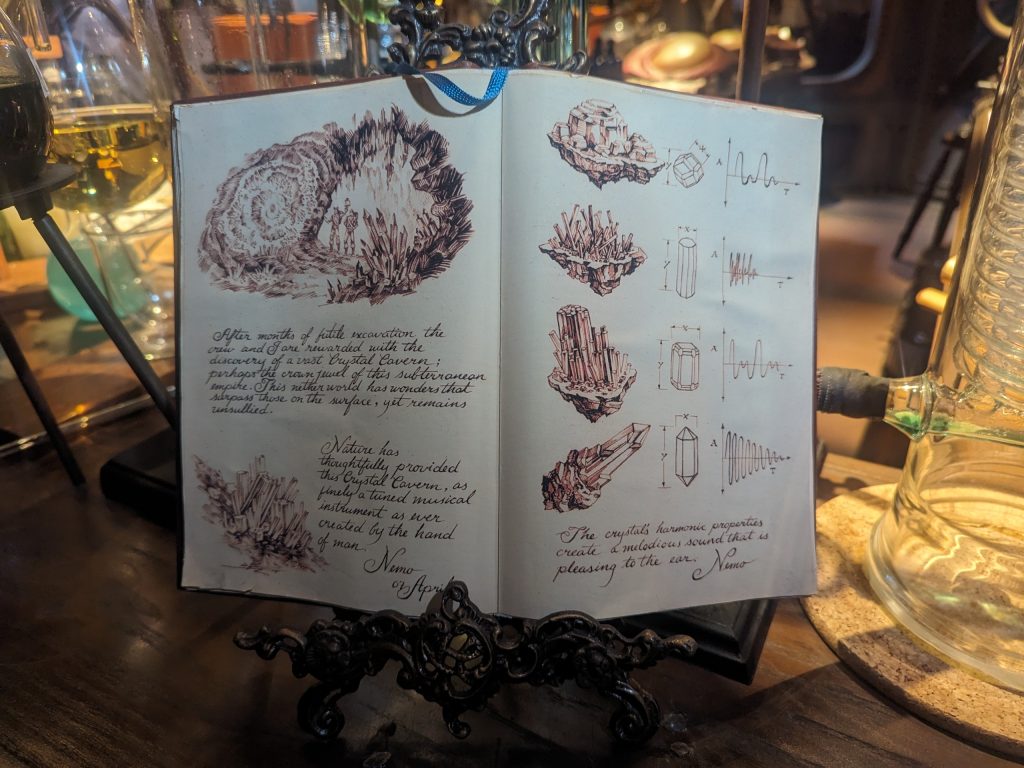 After months of futile excavation, the
crew and I are rewarded with the
discovery of a vast Crystal Cavern;
perhaps the crown jewel of this subterranean
empire. This netherworld has wonders that
surpass those on the surface, yet remains
unsullied.
Nature has
thoughtfully provided
this Crystal Cavern, as
finely a tuned musical
instrument as ever
created by the hand
of man.
Nemo
April
A
T
Y
X
A
T
Y
X
A
T
Y
X
A
T
The crystal's harmonic properties
create a melodious sound that is
pleasing to the ear. Nemo